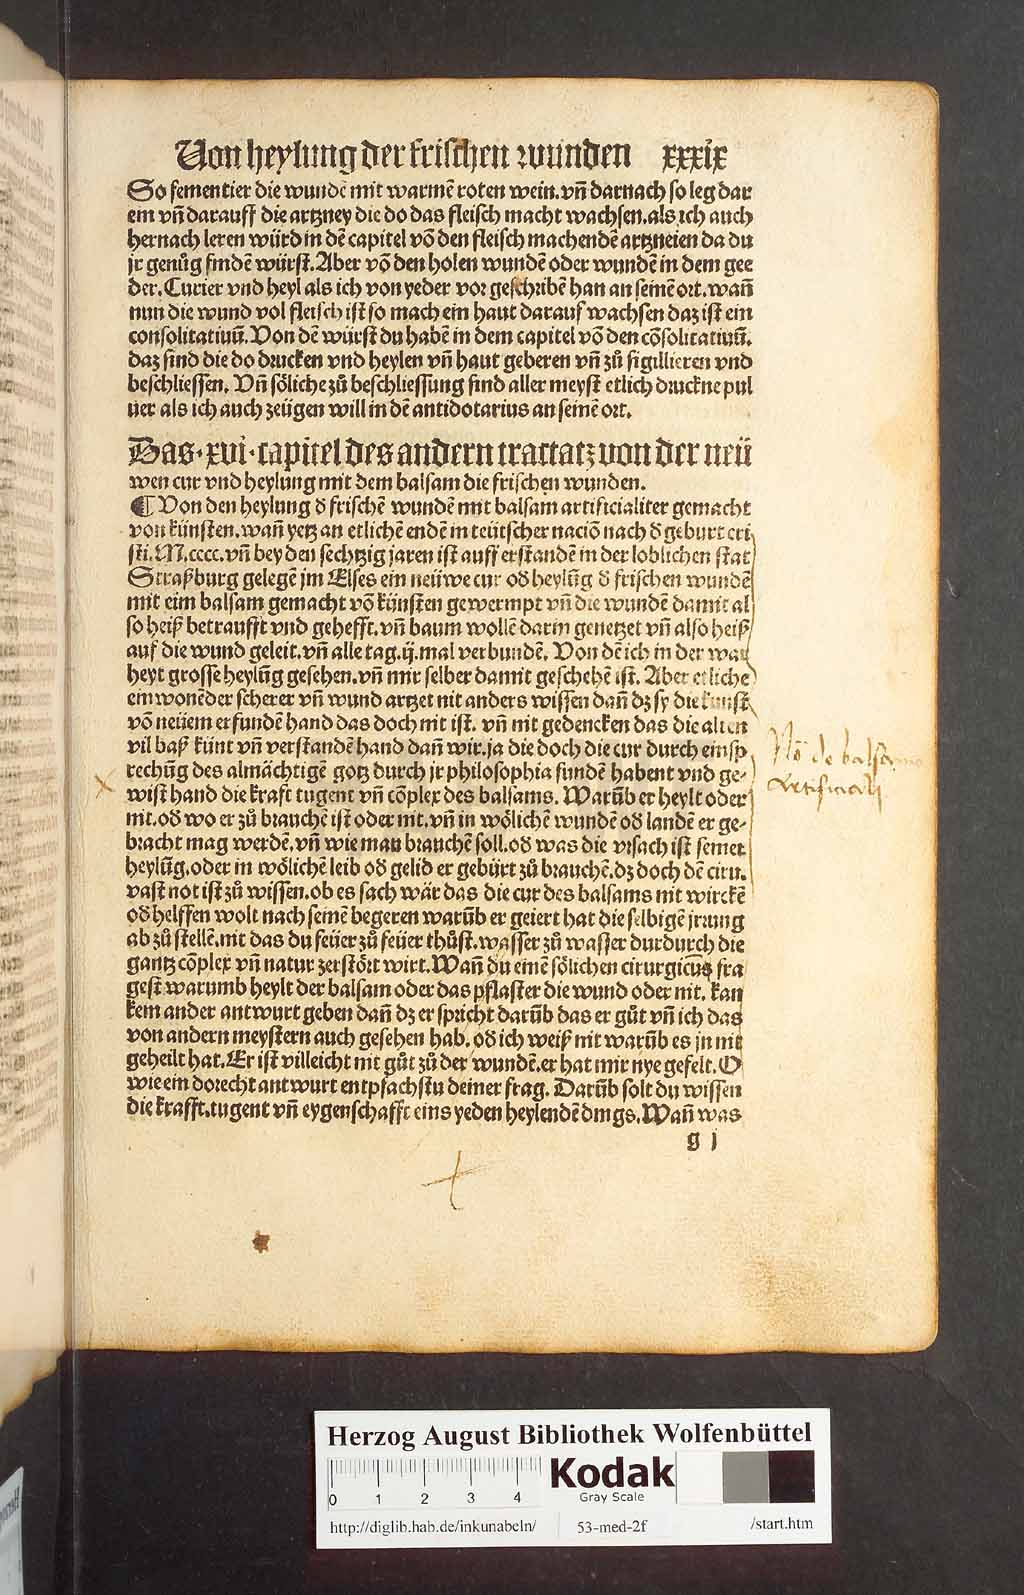 Von heylung der frischen wunden xxxix
So fementier die wundē mit warmē roten wein. vñ darnach so leg dar
em vñ darauff die artzney die do das fleisch macht wachsen. als ich auch
hernach leren würd in dē capitel vō den fleisch machendē artzneien da du
jr genůg findē würst. Aber vō den holen wundē oder wundē in dem gee
der. Curier vnd heyl als ich von yeder vor geschribē han an seinē ort. wañ
nun die wund vol fleisch ist so mach ein haut darauf wachsen daz ist ein
consolitatiuū. Von dē würst du habē in dem capitel vō den cōsolitatiuū.
daz sind die do drucken vnd heylen vñ haut geberen vñ zů sigillieren vnd
beschliessen. Vñ söliche zů beschliessung sind aller meyst etlich druckne pul
uer als ich auch zeügen will in dē antidotarius an seinē ort.
Das .xvi. capitel des andern tractatz von der neü
wen cur vnd heylung mit dem balsam die frischen wunden.
¶ Von den heylung d̄ frischē wundē mit balsam artificialiter gemacht
von künsten. wañ yetz an etlichē endē in teütscher naciō nach d̄ geburt cri
sti. M.cccc. vñ bey den sechtzig jaren ist auff erstandē in der loblichen stat
Straßburg gelegē jm Elses ein neüwe cur od̄ heylūg d̄ frischen wundē
mit eim balsam gemacht vō künsten gewermpt vñ die wundē damit al
so heiß betraufft vnd gehefft. vñ baum wollē darin genetzet vñ also heiß
auf die wund geleit. vñ alle tag .ij. mal verbundē. Von dē ich in der war
heyt grosse heylūg gesehen. vñ mir selber damit geschehē ist. Aber etliche
einwonēder scherer vñ wund artzet nit anders wissen dañ dz sy die kunst
vō neüem erfundē hand das doch nit ist. vñ nit gedencken das die alten
vil baß künt vñ verstandē hand dañ wir. ja die doch die cur durch einsp
rechūg des almächtigē gotz durch jr philosophia fundē habent vnd ge-
wist hand die kraft tugent vñ cōplex des balsams. Warūb er heylt oder
nit. od̄ wo er zů brauchē ist oder nit. vñ in wölichē wundē od̄ landē er ge-
bracht mag werdē. vñ wie man brauchē soll. od̄ was die vrsach ist seiner
heylūg. oder in wölichē leib od̄ gelid er gebürt zů brauchē. dz doch dē ciru.
vast not ist zů wissen. ob es sach wär das die cur des balsams nit wirckē
od̄ helffen wolt nach seinē begeren warūb er geiert hat die selbigē jrrung
ab zů stellē. nit das du feüer zů feüer thůst. wasser zů wasser durdurch die
gantz cōplex vñ natur zerstört wirt. Wañ du einē sölichen cirurgicūs fra
gest warumb heylt der balsam oder das pflaster die wund oder nit. kan
kein ander antwurt geben dañ dz er spricht darūb das er gůt vñ ich das
von andern meystern auch gesehen hab. od̄ ich weiß nit warūb es jn nit
geheilt hat. Er ist villeicht nit gůt zů der wundē. er hat mir nye gefelt. O
wie ein dorecht antwurt entpfachstu deiner frag. Darūb solt du wissen
die krafft. tugent vñ eygenschafft eins yeden heylendē dings. Wañ was
g j
Nō de balsamo
Artificiali
Herzog August Bibliothek Wolfenbüttel
0 1 2 3 4
Kodak
Gray Scale
http://diglib.hab.de/inkunabeln/ 53-med-2f /start.htm